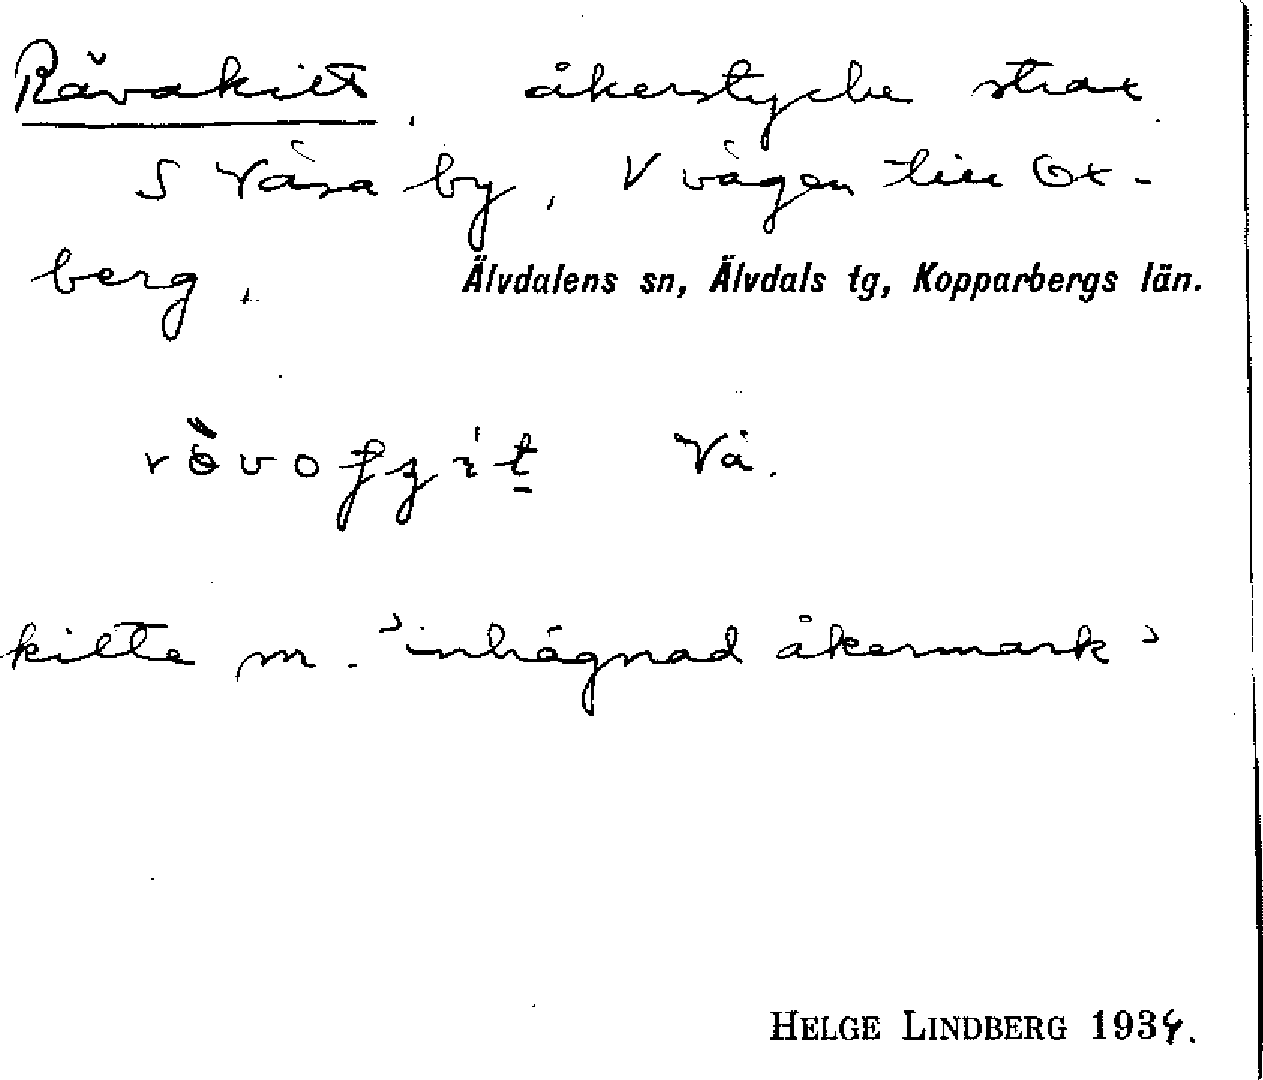 Rävakilt, åkerstycke strax
S Våsa by, V vägen till Ox-
berg,
Älvdalens sn, Älvdals tg, Kopparbergs län.
Vå.
kilte m. 'inhägnad åkermark'
HELGE LINDBERG 1934.